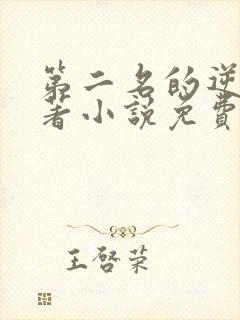 第二名的逆
著小说免费
王启荣